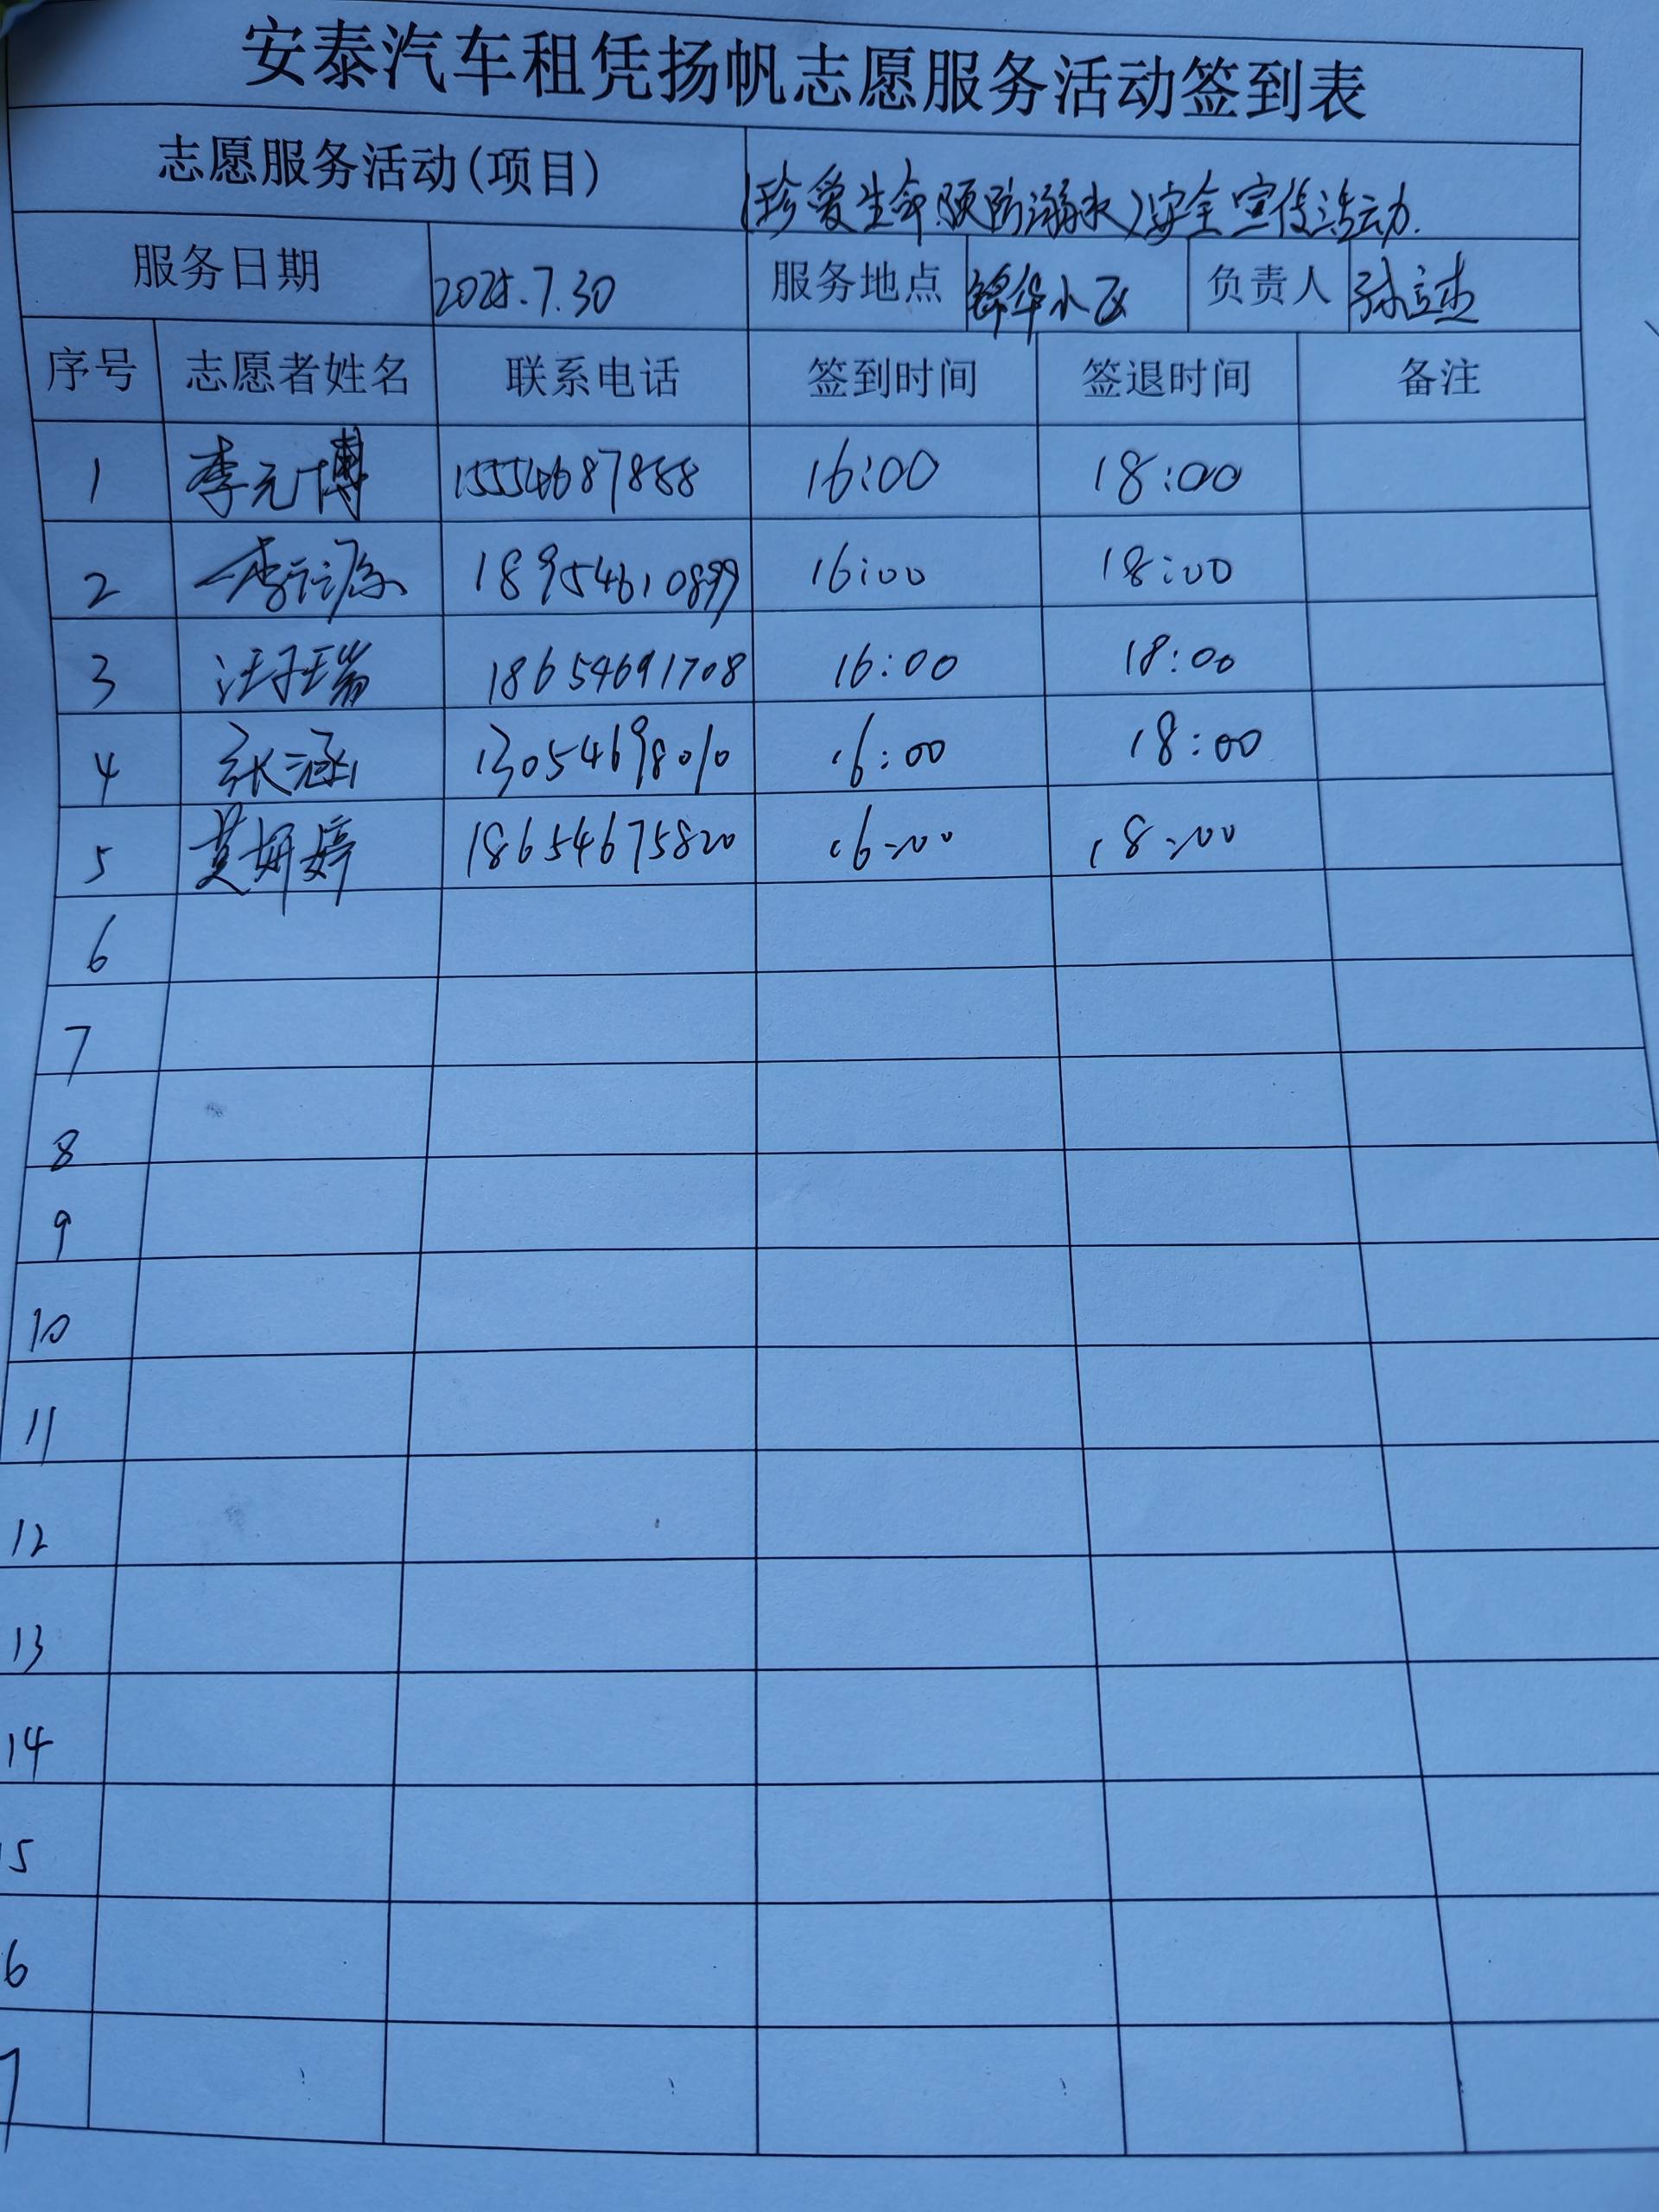 安泰汽车租凭扬帆志愿服务活动签到表
志愿服务活动(项目) (珍爱生命预防溺水)安全宣传活动.
服务日期 2025.7.30 服务地点 锦华小区 负责人
序号 志愿者姓名 联系电话 签到时间 签退时间 备注
1 李元博 15554687888 16:00 18:00
2 18954610899 16:00 18:00
3 汪子瑞 18654691708 16:00 18:00
4 张涵 13054698010 16:00 18:00
5 莫妍婷 18654675820 16:00 18:00
6
7
8
9
10
11
12
13
14
5
6
7